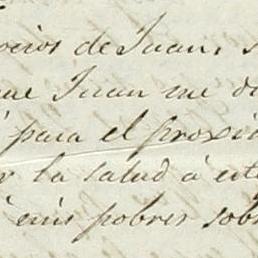 ocios de Juan, s
ue Juan me d
para el proxi
r la salud á est
á mis pobres sob